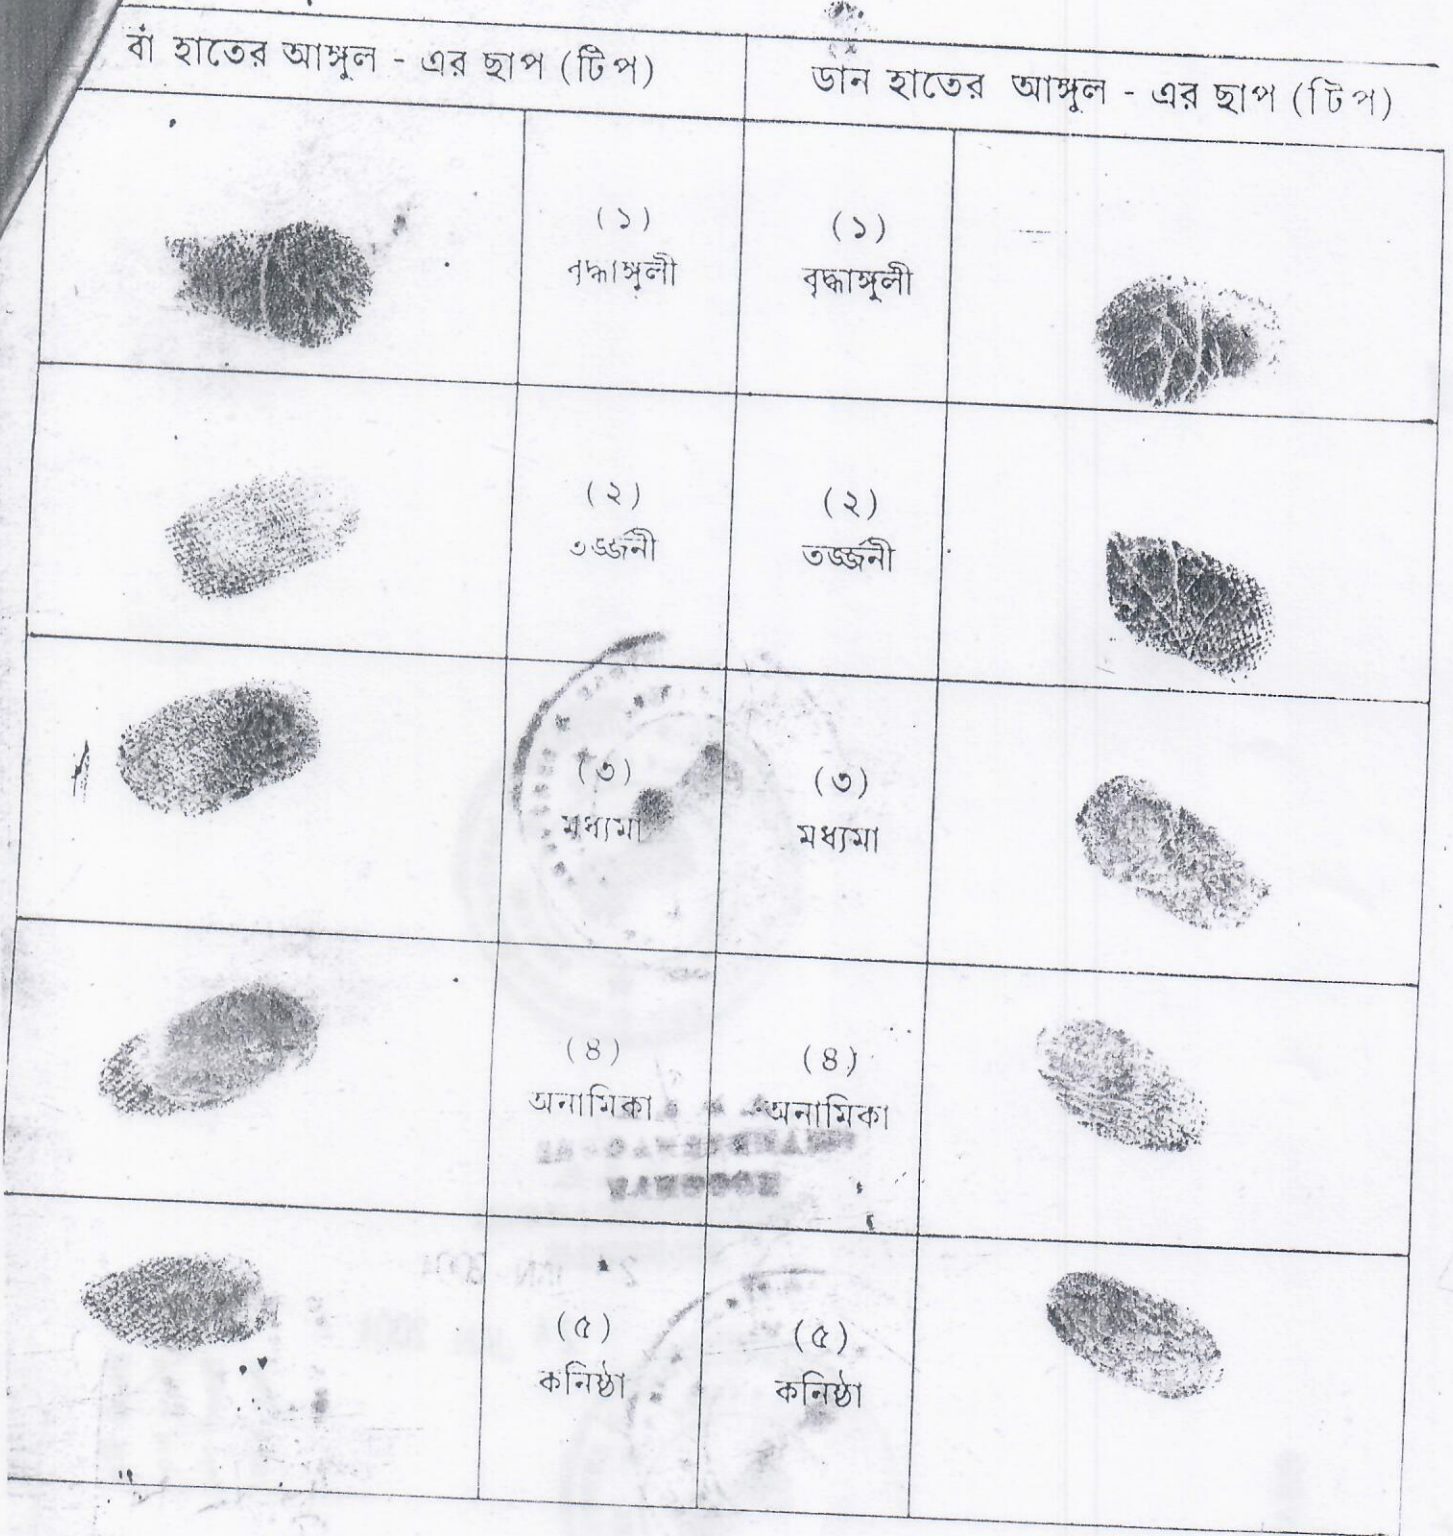 বাঁ হাতের আঙ্গুল - এর ছাপ (টিপ)
ডান হাতের আঙ্গুল - এর ছাপ (টিপ)
(১)
বৃদ্ধাঙ্গুলী
(১)
বৃদ্ধাঙ্গুলী
(২)
তর্জ্জনী
(২)
তর্জ্জনী
(৩)
মধ্যমা
(৩)
মধ্যমা
(৪)
অনামিকা
(৪)
অনামিকা
(৫)
কনিষ্ঠা
(৫)
কনিষ্ঠা